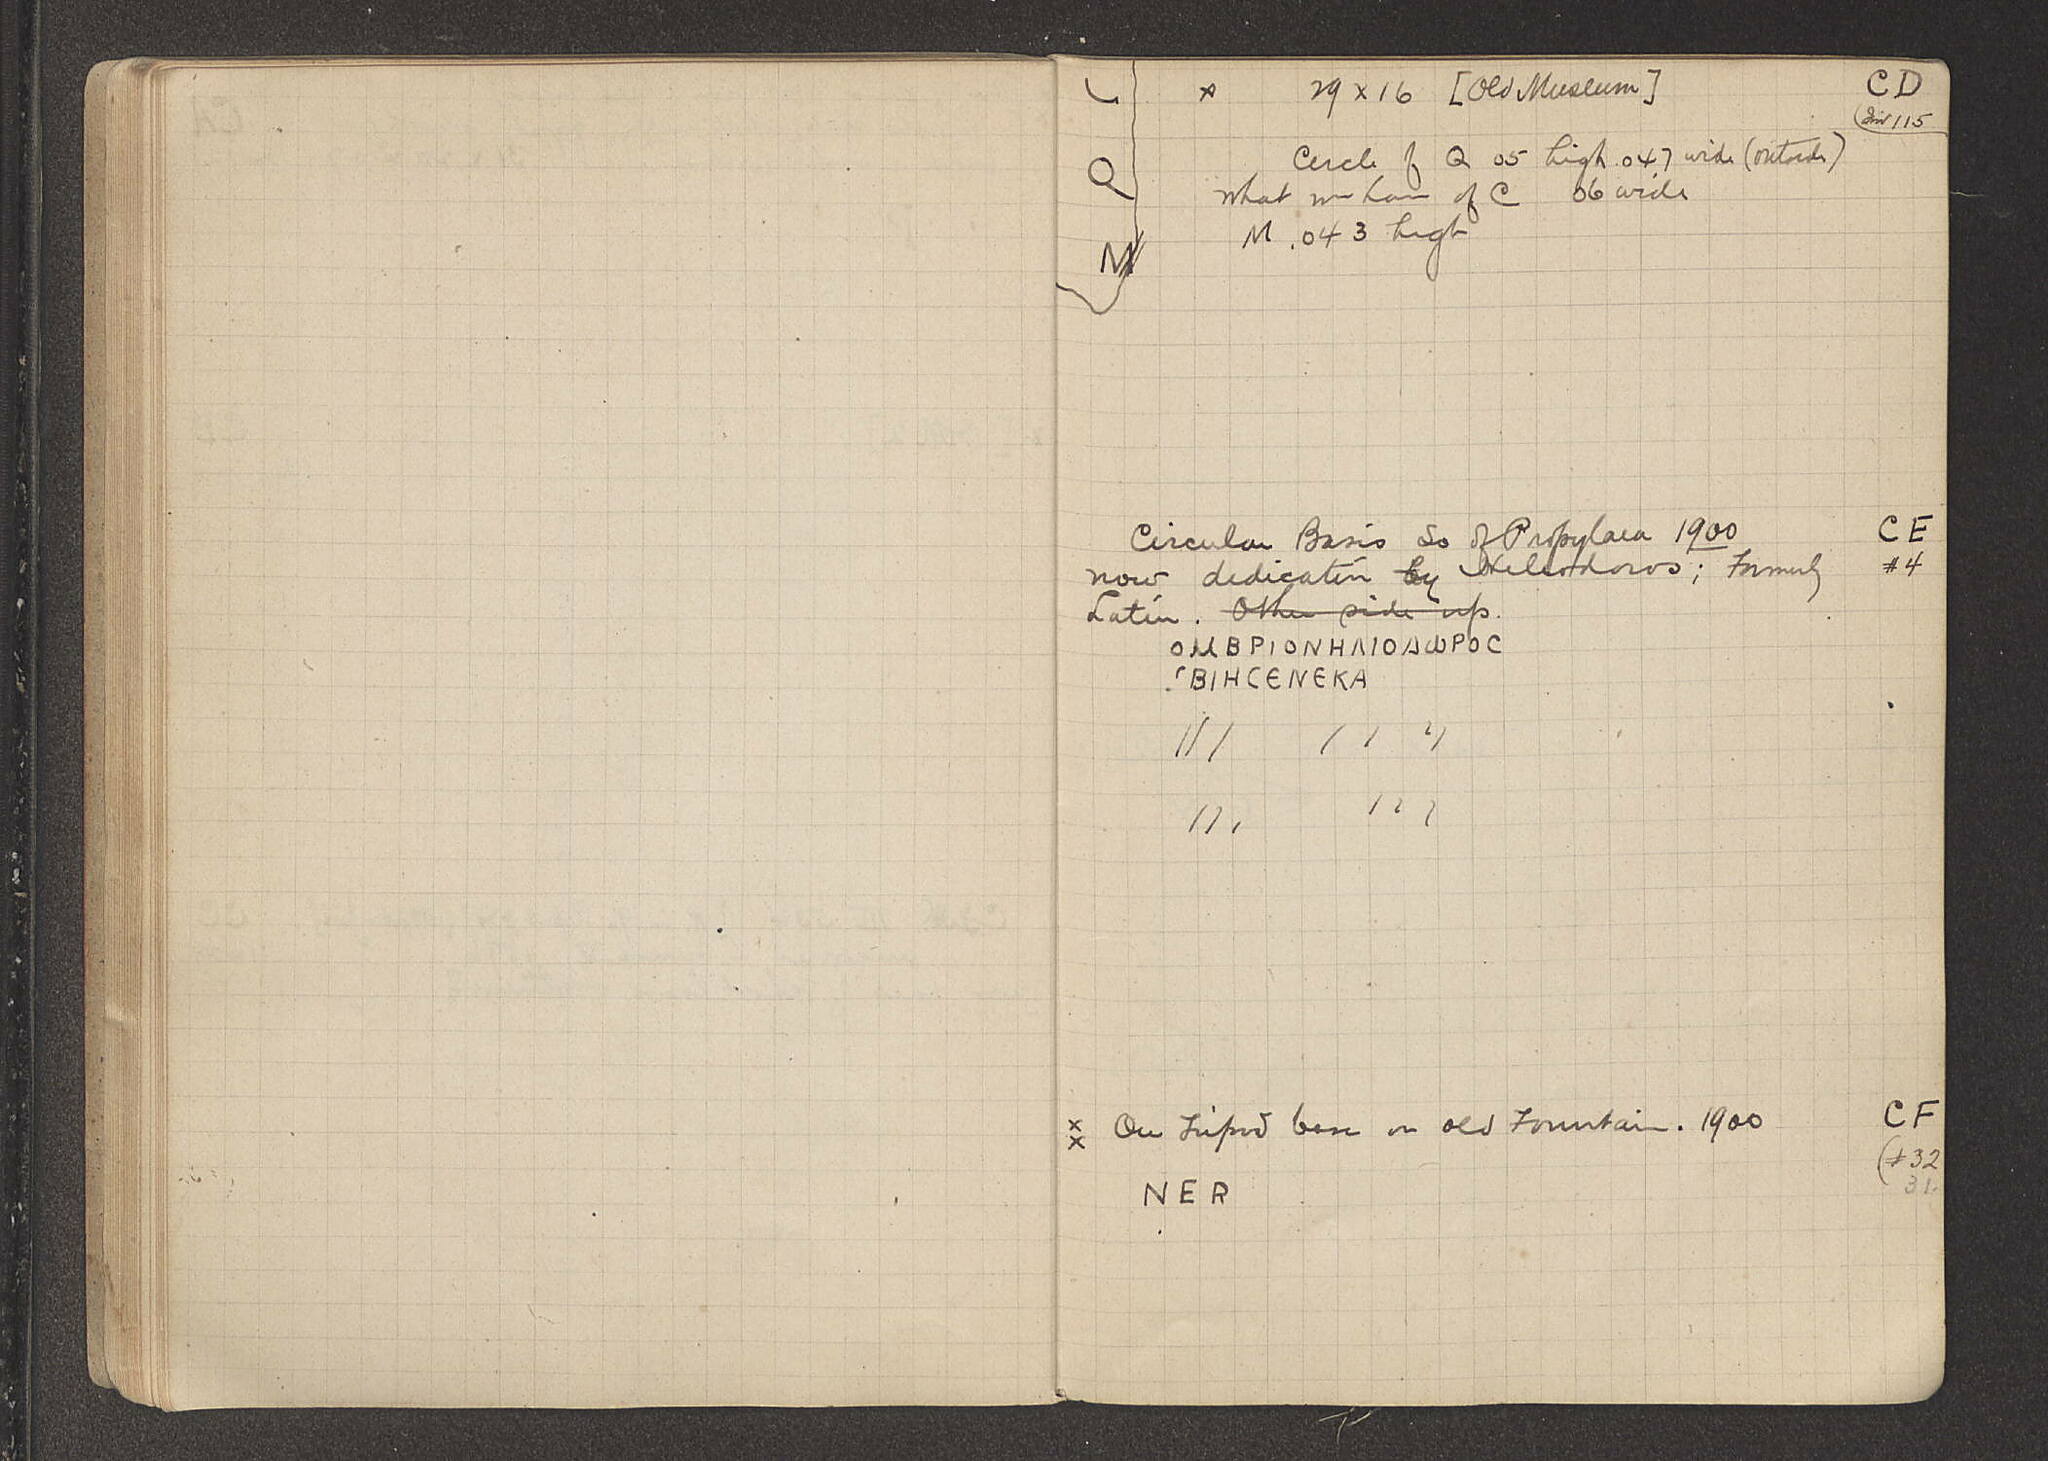 C
x 29 x 16 [Old Museum] CD
(Inv 115
Q
Circle of Q 05 high .047 wide (outside)
what we have of C 06 wide
M
M .043 high
Circular Basis So of Propylaea 1900 CE
now dedication by Heliodoros; Formerly #4
Latin. Other side up.
ΟΜΒΡΙΟΝΗΛΙΟΔΩΡΟC
ΒΙΗCΕΝΕΚΑ
x x On Tripod base on old Fountain. 1900 CF
(#32
31
NER